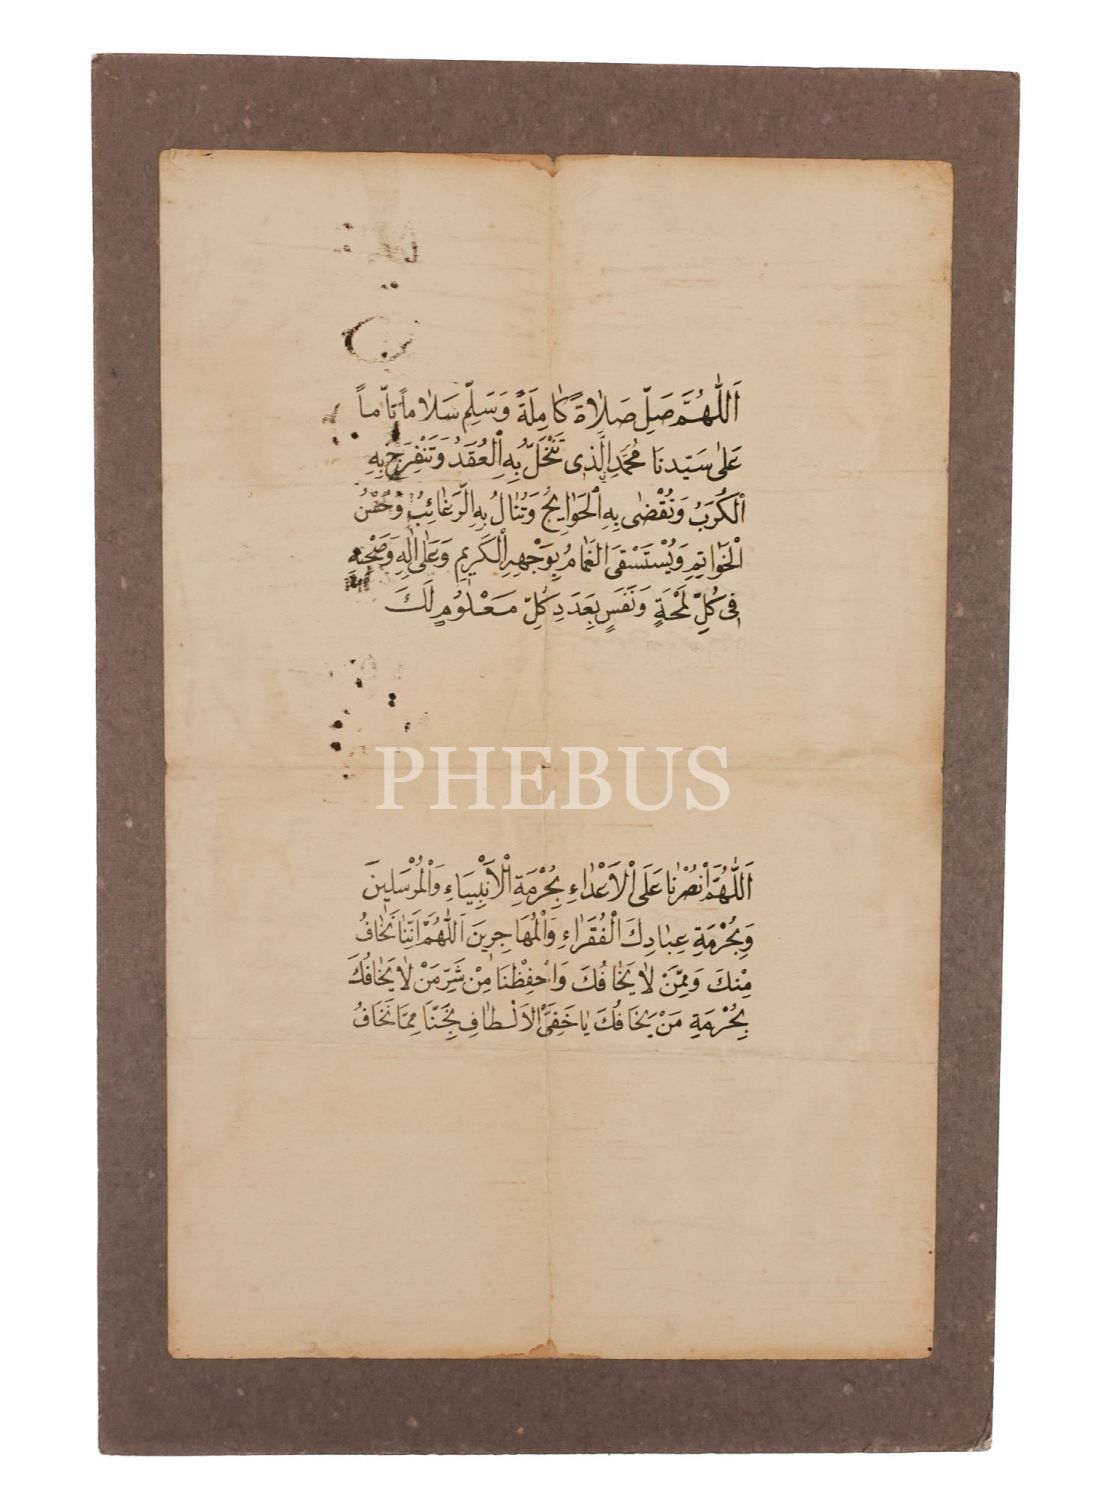 اَللّٰهُمَّ صَلِّ صَلاٰةً كٰامِلَةً وَسَلِّمْ سَلاٰماً تاٰمّاً
عَلىٰ سَيِّدِنَا مُحَمَّدِ الَّذى تَنْحَلُّ بِهِ الْعُقَدُ وَتَنْفَرِجُ بِهِ
الْكُرَبُ وَتُقْضٰى بِهِ الْحَوٰايِجُ وَتُنٰالُ بِهِ الرَّغٰائِبُ وَحُسْنُ
الْخَوٰاتِمِ وَيُسْتَسْقَى الْغَمٰامُ بِوَجْهِهِ الْكَرِيمِ وَعَلىٰ اٰلِهِ وَصَحْبِهِ
فِى كُلِّ لَمْحَةٍ وَنَفَسٍ بِعَدَدِ كُلِّ مَعْلُومٍ لَكَ
PHEBUS
اَللّٰهُمَّ انْصُرْنٰا عَلَى الْاَعْدٰاءِ بِحُرْمَةِ الْاَنْبِيٰاءِ وَالْمُرْسَلِينَ
وَبِحُرْمَةِ عِبٰادِكَ الْفُقَرٰاءِ وَالْمُهَاجِرِينَ اَللّٰهُمَّ اِنَّنٰا نَخٰافُ
مِنْكَ وَمِمَّنْ لاٰ يَخٰافُكَ وَاحْفِظْنَا مِنْ شَرِّ مَنْ لاٰ يَخٰافُكَ
بِحُرْمَةِ مَنْ يَخَافُكَ يٰا خَفِىَّ الْاَلْطٰافِ نَجِّنَا مِمَّا نَخَافُ